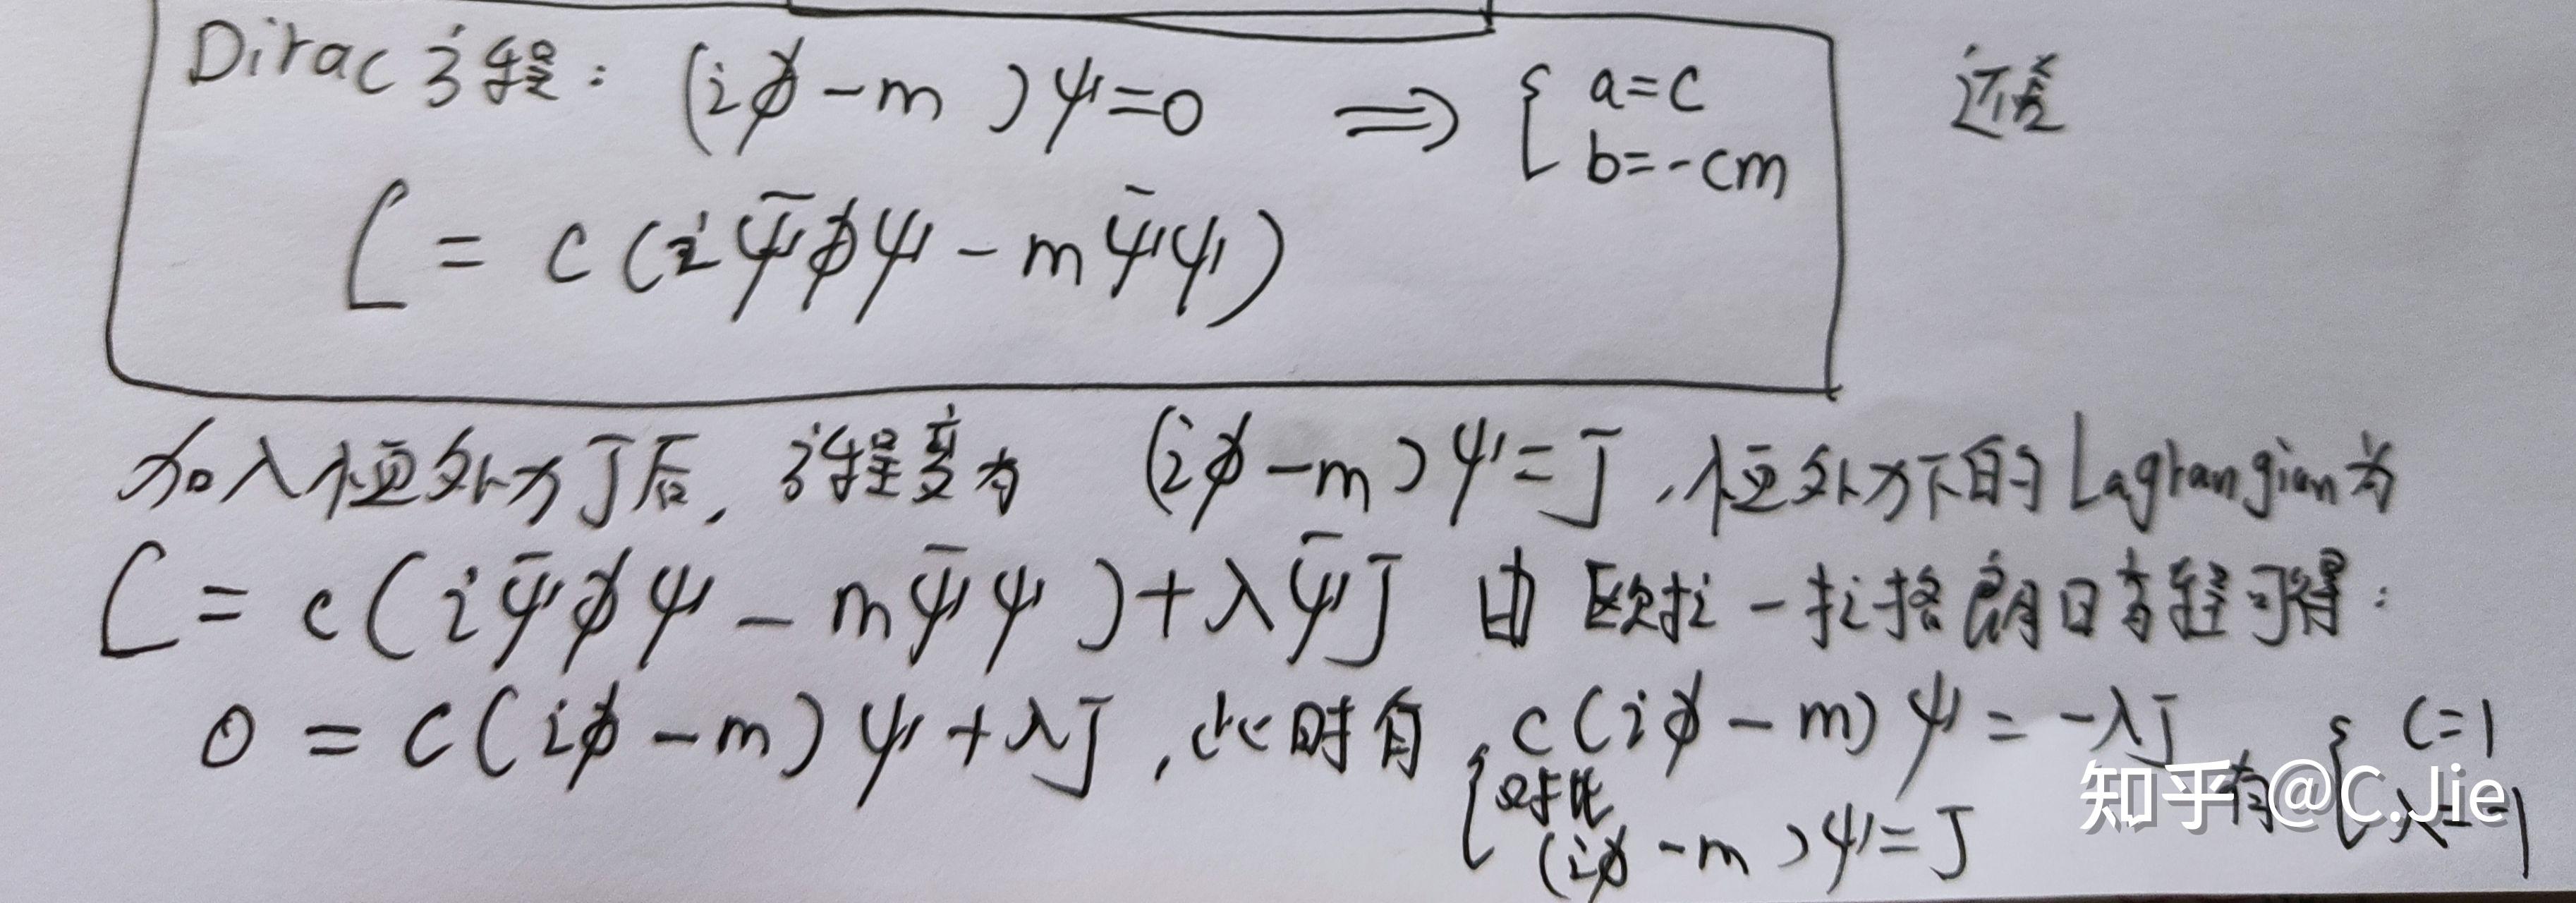 Dirac方程: (i∂̸ - m)ψ=0 ⟹ { a=c
b=-cm
L = c(iψ̄∂̸ψ - mψ̄ψ)
加入恒外力J后, 方程变为 (i∂̸ - m)ψ=J, 恒外力下的Lagrangian为
L = c(iψ̄∂̸ψ - mψ̄ψ)+λψ̄J 由欧拉-拉格朗日方程可得:
0 = c(i∂̸ - m)ψ+λJ, 此时有 { c(i∂̸ - m)ψ = -λJ
对比
(i∂̸ - m)ψ=J
有 { c=1
λ=-1
知乎 @C.Jie